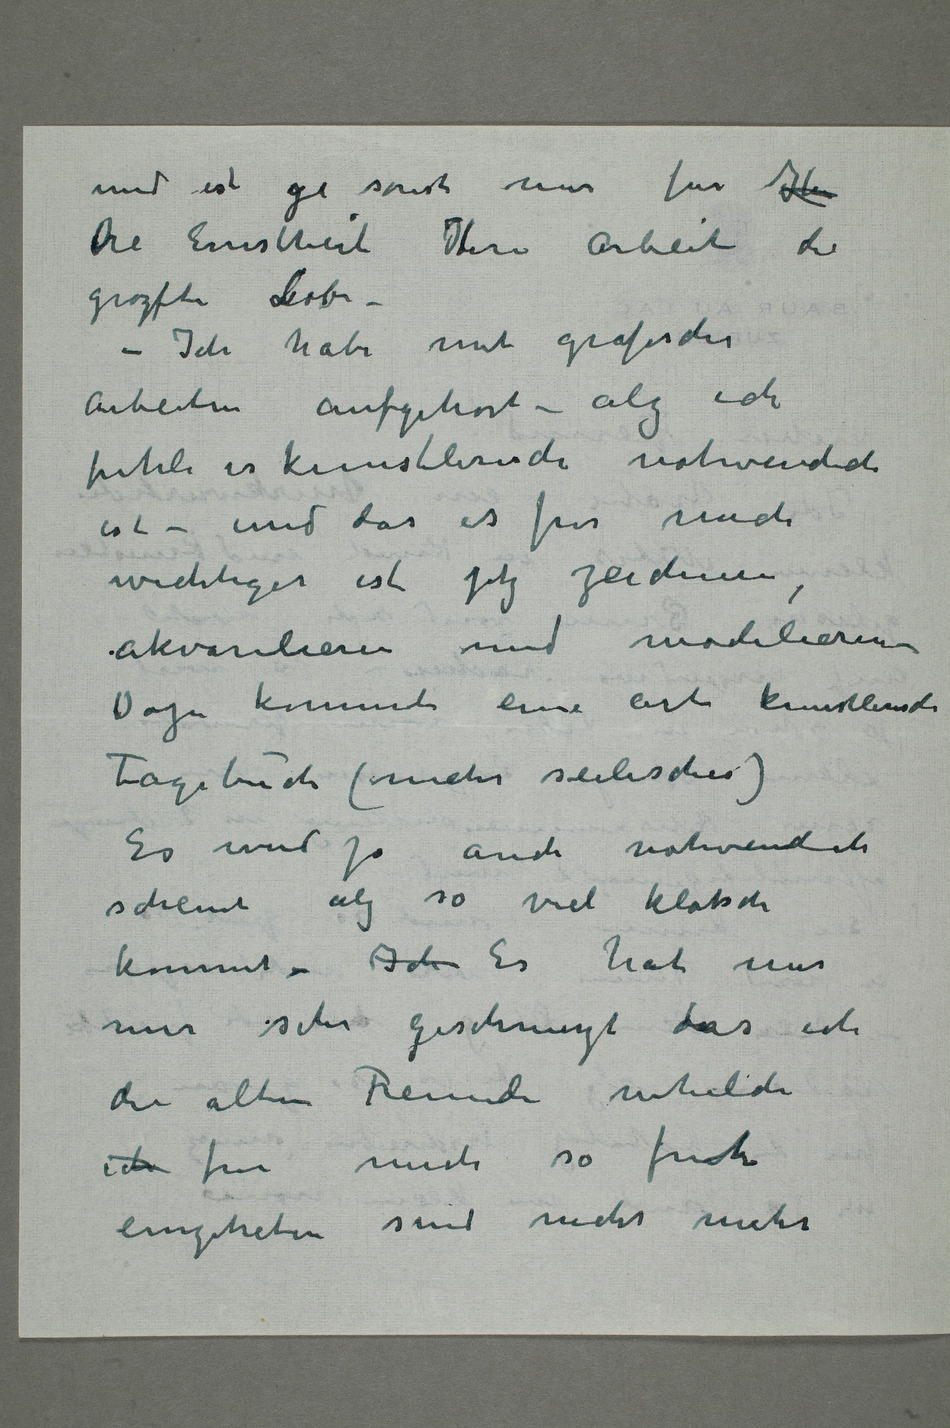 und ist ge sonst nur für Ihn
die Ernstheit Ihre Arbeit die
grozfte Lobe –
– Ich habe mit grafischer
Arbeiten aufgehört – alz ich
fühle es kunstlerisch notwendich
ist – und das es für mich
wichtiger ist jetz zeichnen,
akvarelieren und modelieren
Dazu kommt eine art kunstlerisch
Tagebuch (mehr seelisches)
Es wird ja auch notwendich
scheint alz so viel klatsch
kommt – Ich Es hat nur
mir sehr geschmerzt das ich
die alten Freunde
ich für mich so
sind nicht mehr